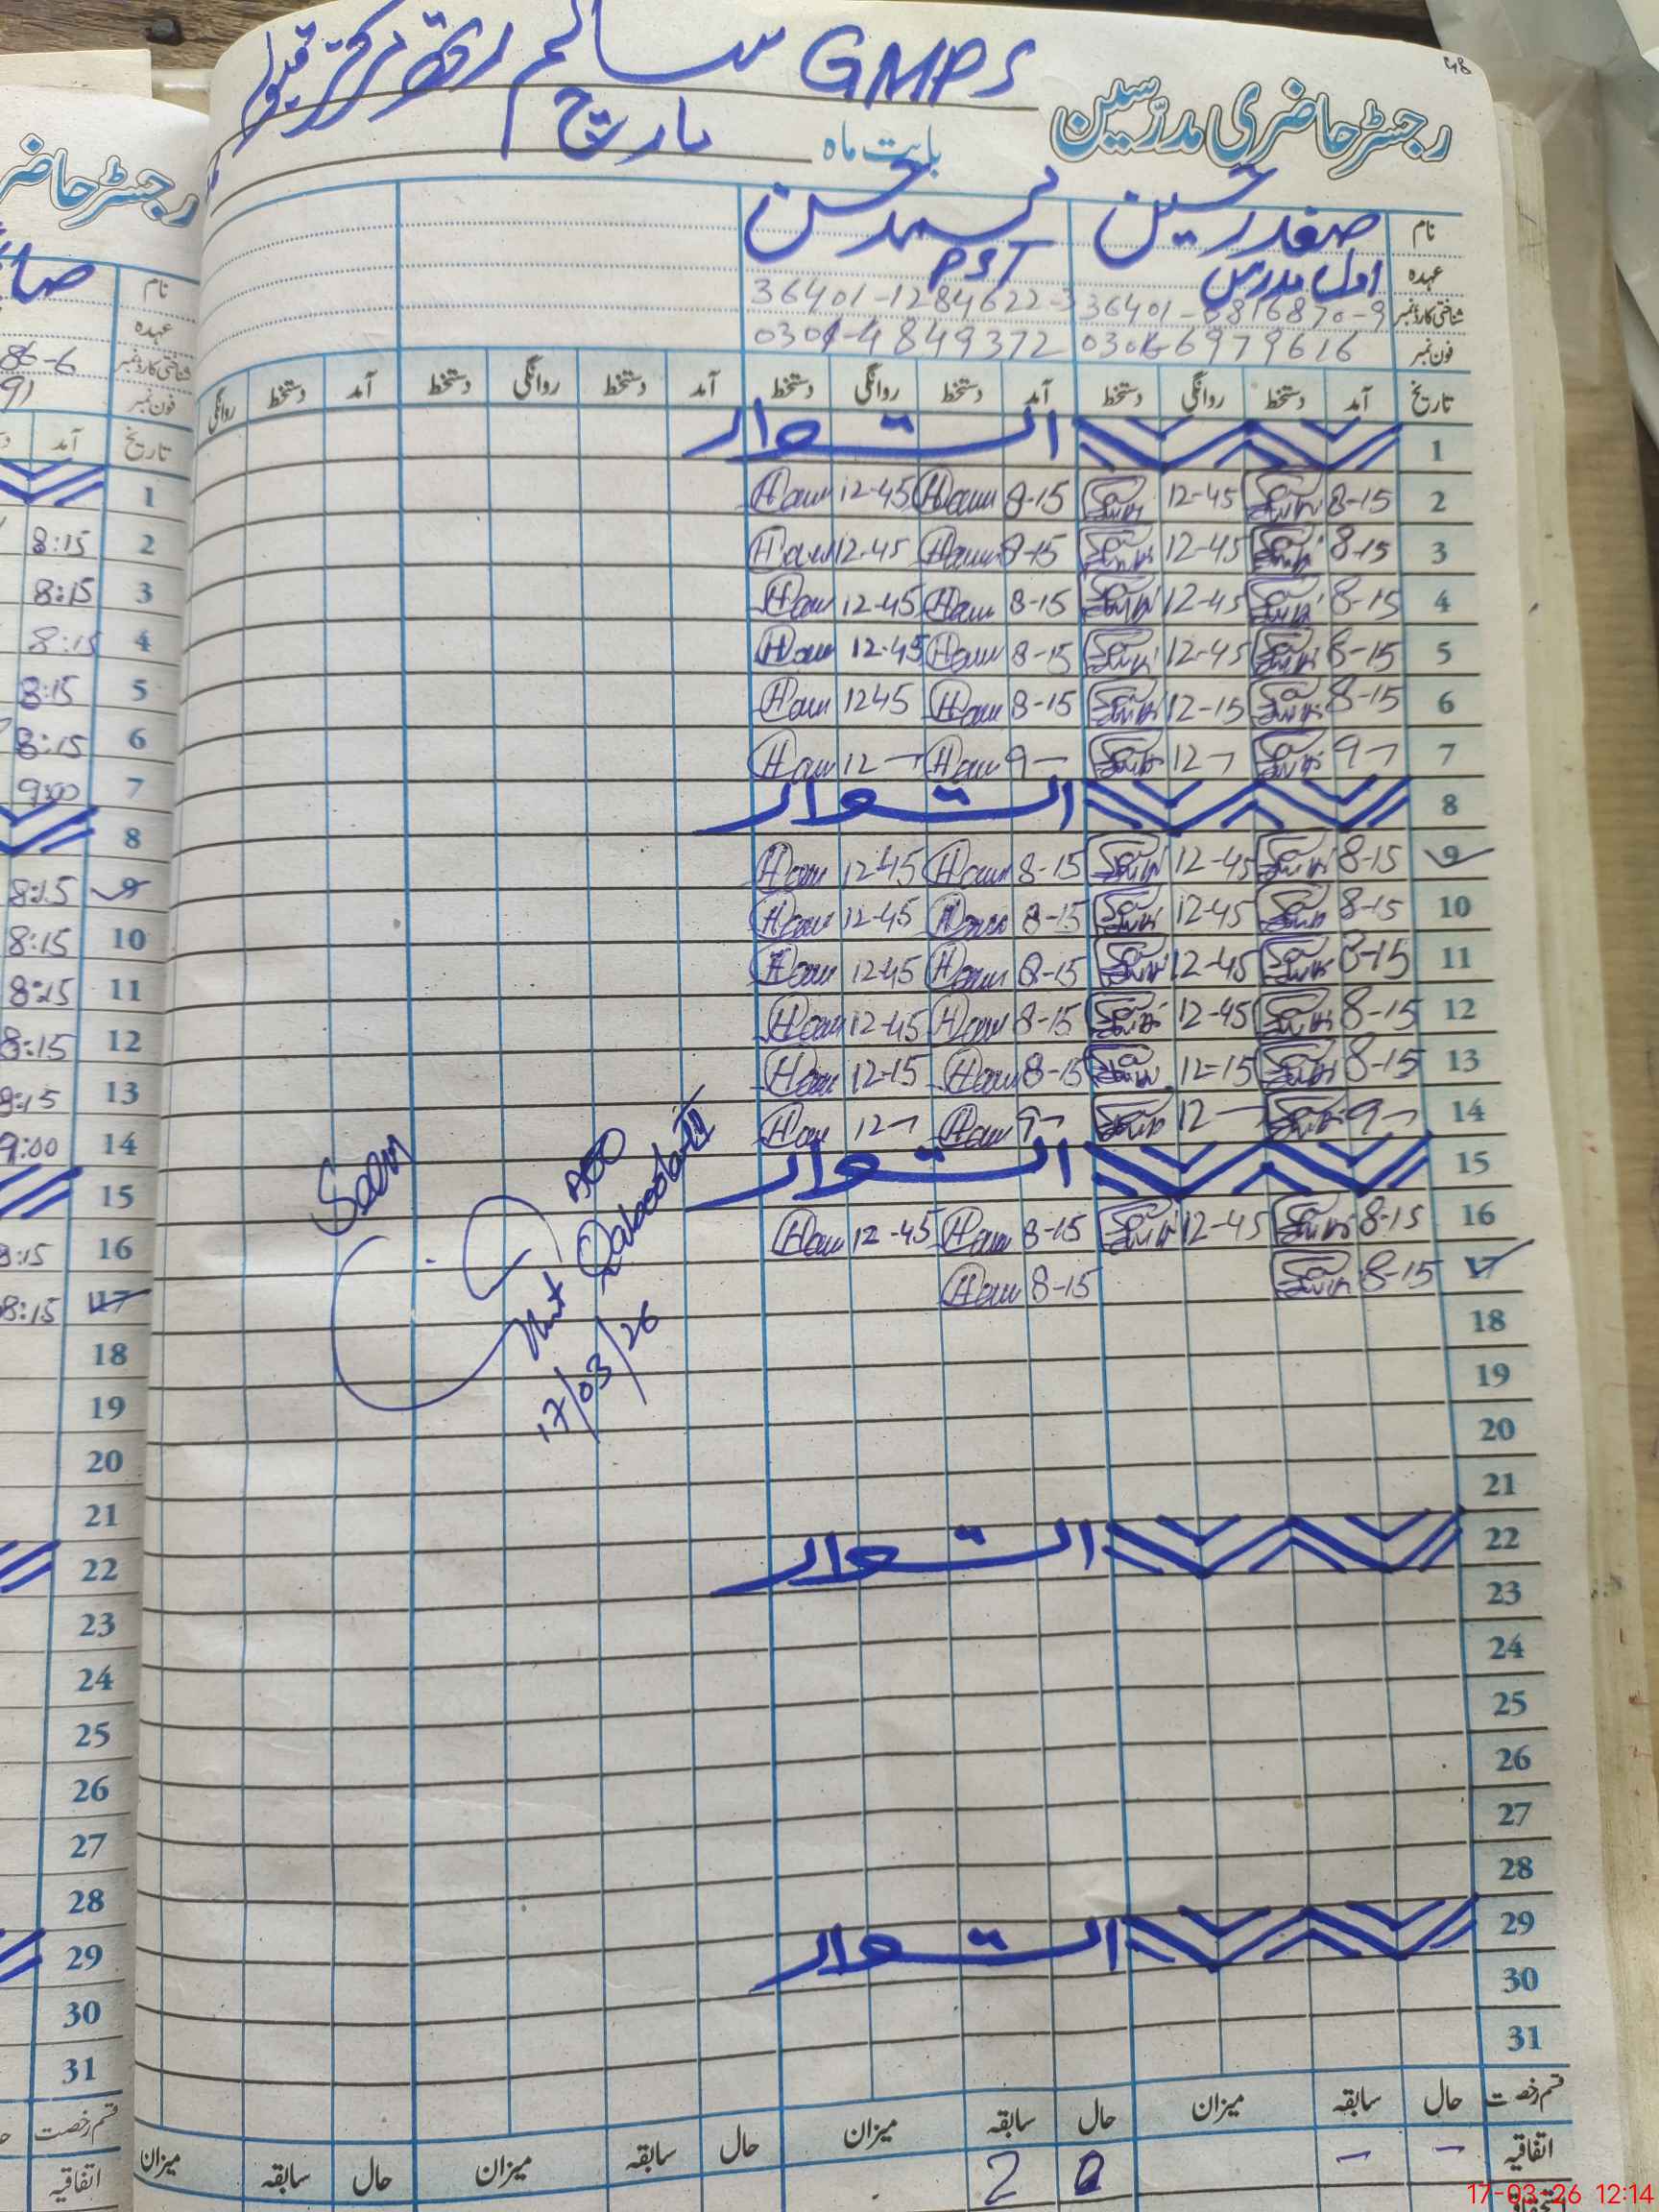 48
GMPS سالم رتھ مرکز قبولہ
رجسٹر حاضری مدرسین
بابت ماہ مارچ
نام صفدر حسین
عہدہ اول مدرس PST
شناختی کارڈ نمبر 36401-1284622-3
فون نمبر 0304-6979616 0301-4849372
تاریخ آمد دستخط روانگی دستخط آمد دستخط روانگی دستخط آمد دستخط روانگی دستخط آمد دستخط روانگی
1 اتوار
2 8-15 12-45 8-15 12-45
3 8-15 12-45 8-15 12-45
4 8-15 12-45 8-15 12-45
5 8-15 12-45 8-15 12-45
6 8-15 12-15 8-15 1245
7 9- 12- 9- 12-
8 اتوار
9 8-15 12-45 8-15 12-45
10 8-15 12-45 8-15 12-45
11 8-15 12-45 8-15 12-45
12 8-15 12-45 8-15 12-45
13 8-15 12-15 8-15 12-15
14 9- 12- 9- 12-
15 اتوار
16 8-15 12-45 8-15 12-45
17 8-15 8-15
Seen
AEO
Qaboola III
17/03/26
18
19
20
21
22 اتوار
23
24
25
26
27
28
29 اتوار
30
31
قسم رخصت حال سابقہ میزان حال سابقہ میزان حال سابقہ میزان حال سابقہ میزان
اتفاقیہ - - 2
رجسٹر حاضر
نام
عہدہ
شناختی کارڈ نمبر 86-6
فون نمبر 91
تاریخ آمد
1
2 8:15
3 8:15
4 8:15
5 8:15
6 8:15
7 9:00
8
9 8:15
10 8:15
11 8:15
12 8:15
13 8:15
14 9:00
15
16 8:15
17 8:15
18
19
20
21
22
23
24
25
26
27
28
29
30
31
قسم رخصت
اتفاقیہ
17-03-26 12:14